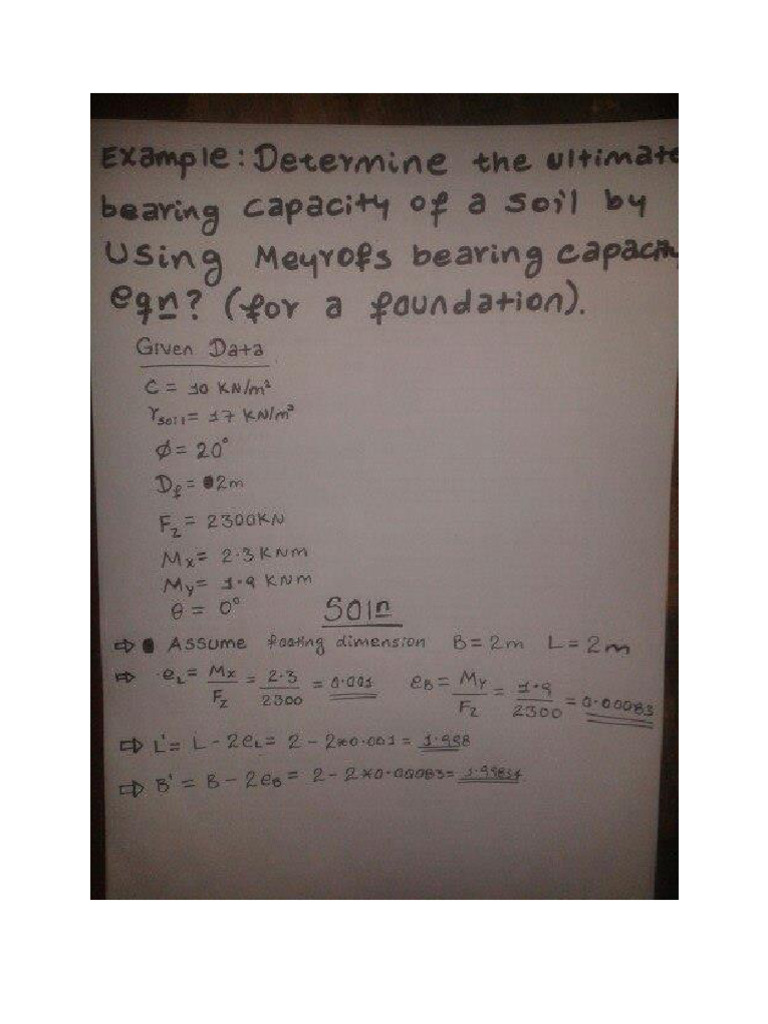 Example: Determine the ultimate
bearing capacity of a soil by
Using Meyrofs bearing capacity
eqn? (for a foundation).
Given Data
C = 10 KN/m²
γsoil = 17 KN/m³
φ = 20°
Df = 2m
Fz = 2300KN
Mx = 2.3 KNm
My = 1.9 KNm
θ = 0°
Soln
⇨ Assume footing dimension B = 2m L = 2m
⇨ eL = Mx/Fz = 2.3/2300 = 0.001 eB = My/Fz = 1.9/2300 = 0.00083
⇨ L' = L - 2eL = 2 - 2*0.001 = 1.998
⇨ B' = B - 2eB = 2 - 2*0.00083 = 1.99834